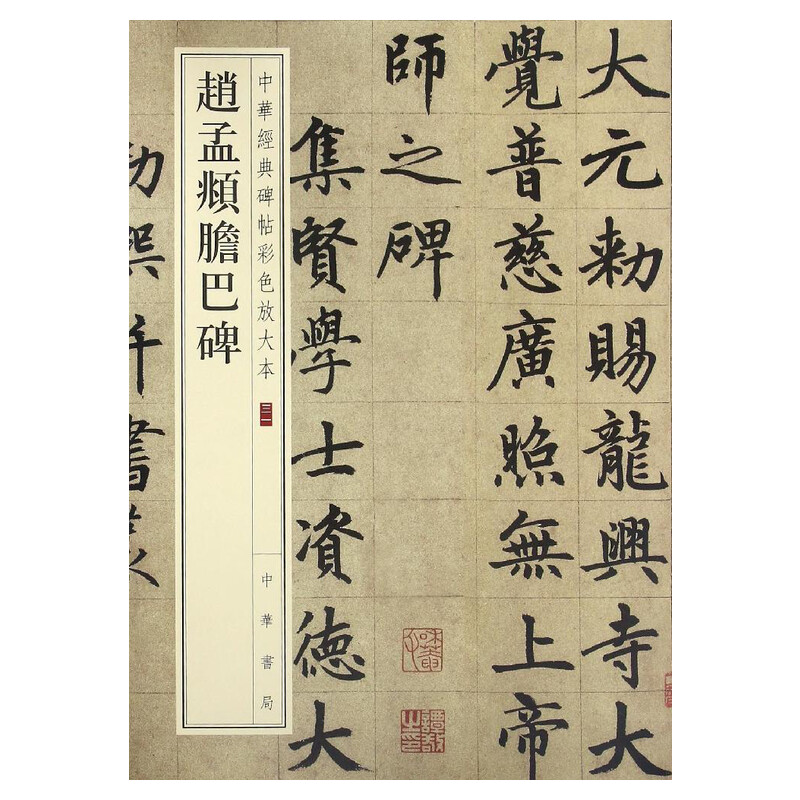 大元勅賜龍興寺大
覺普慈廣照無上帝
師之碑
集賢學士資德大
勅
書
中華經典碑帖彩色放大本
三一
中華書局
趙孟頫膽巴碑